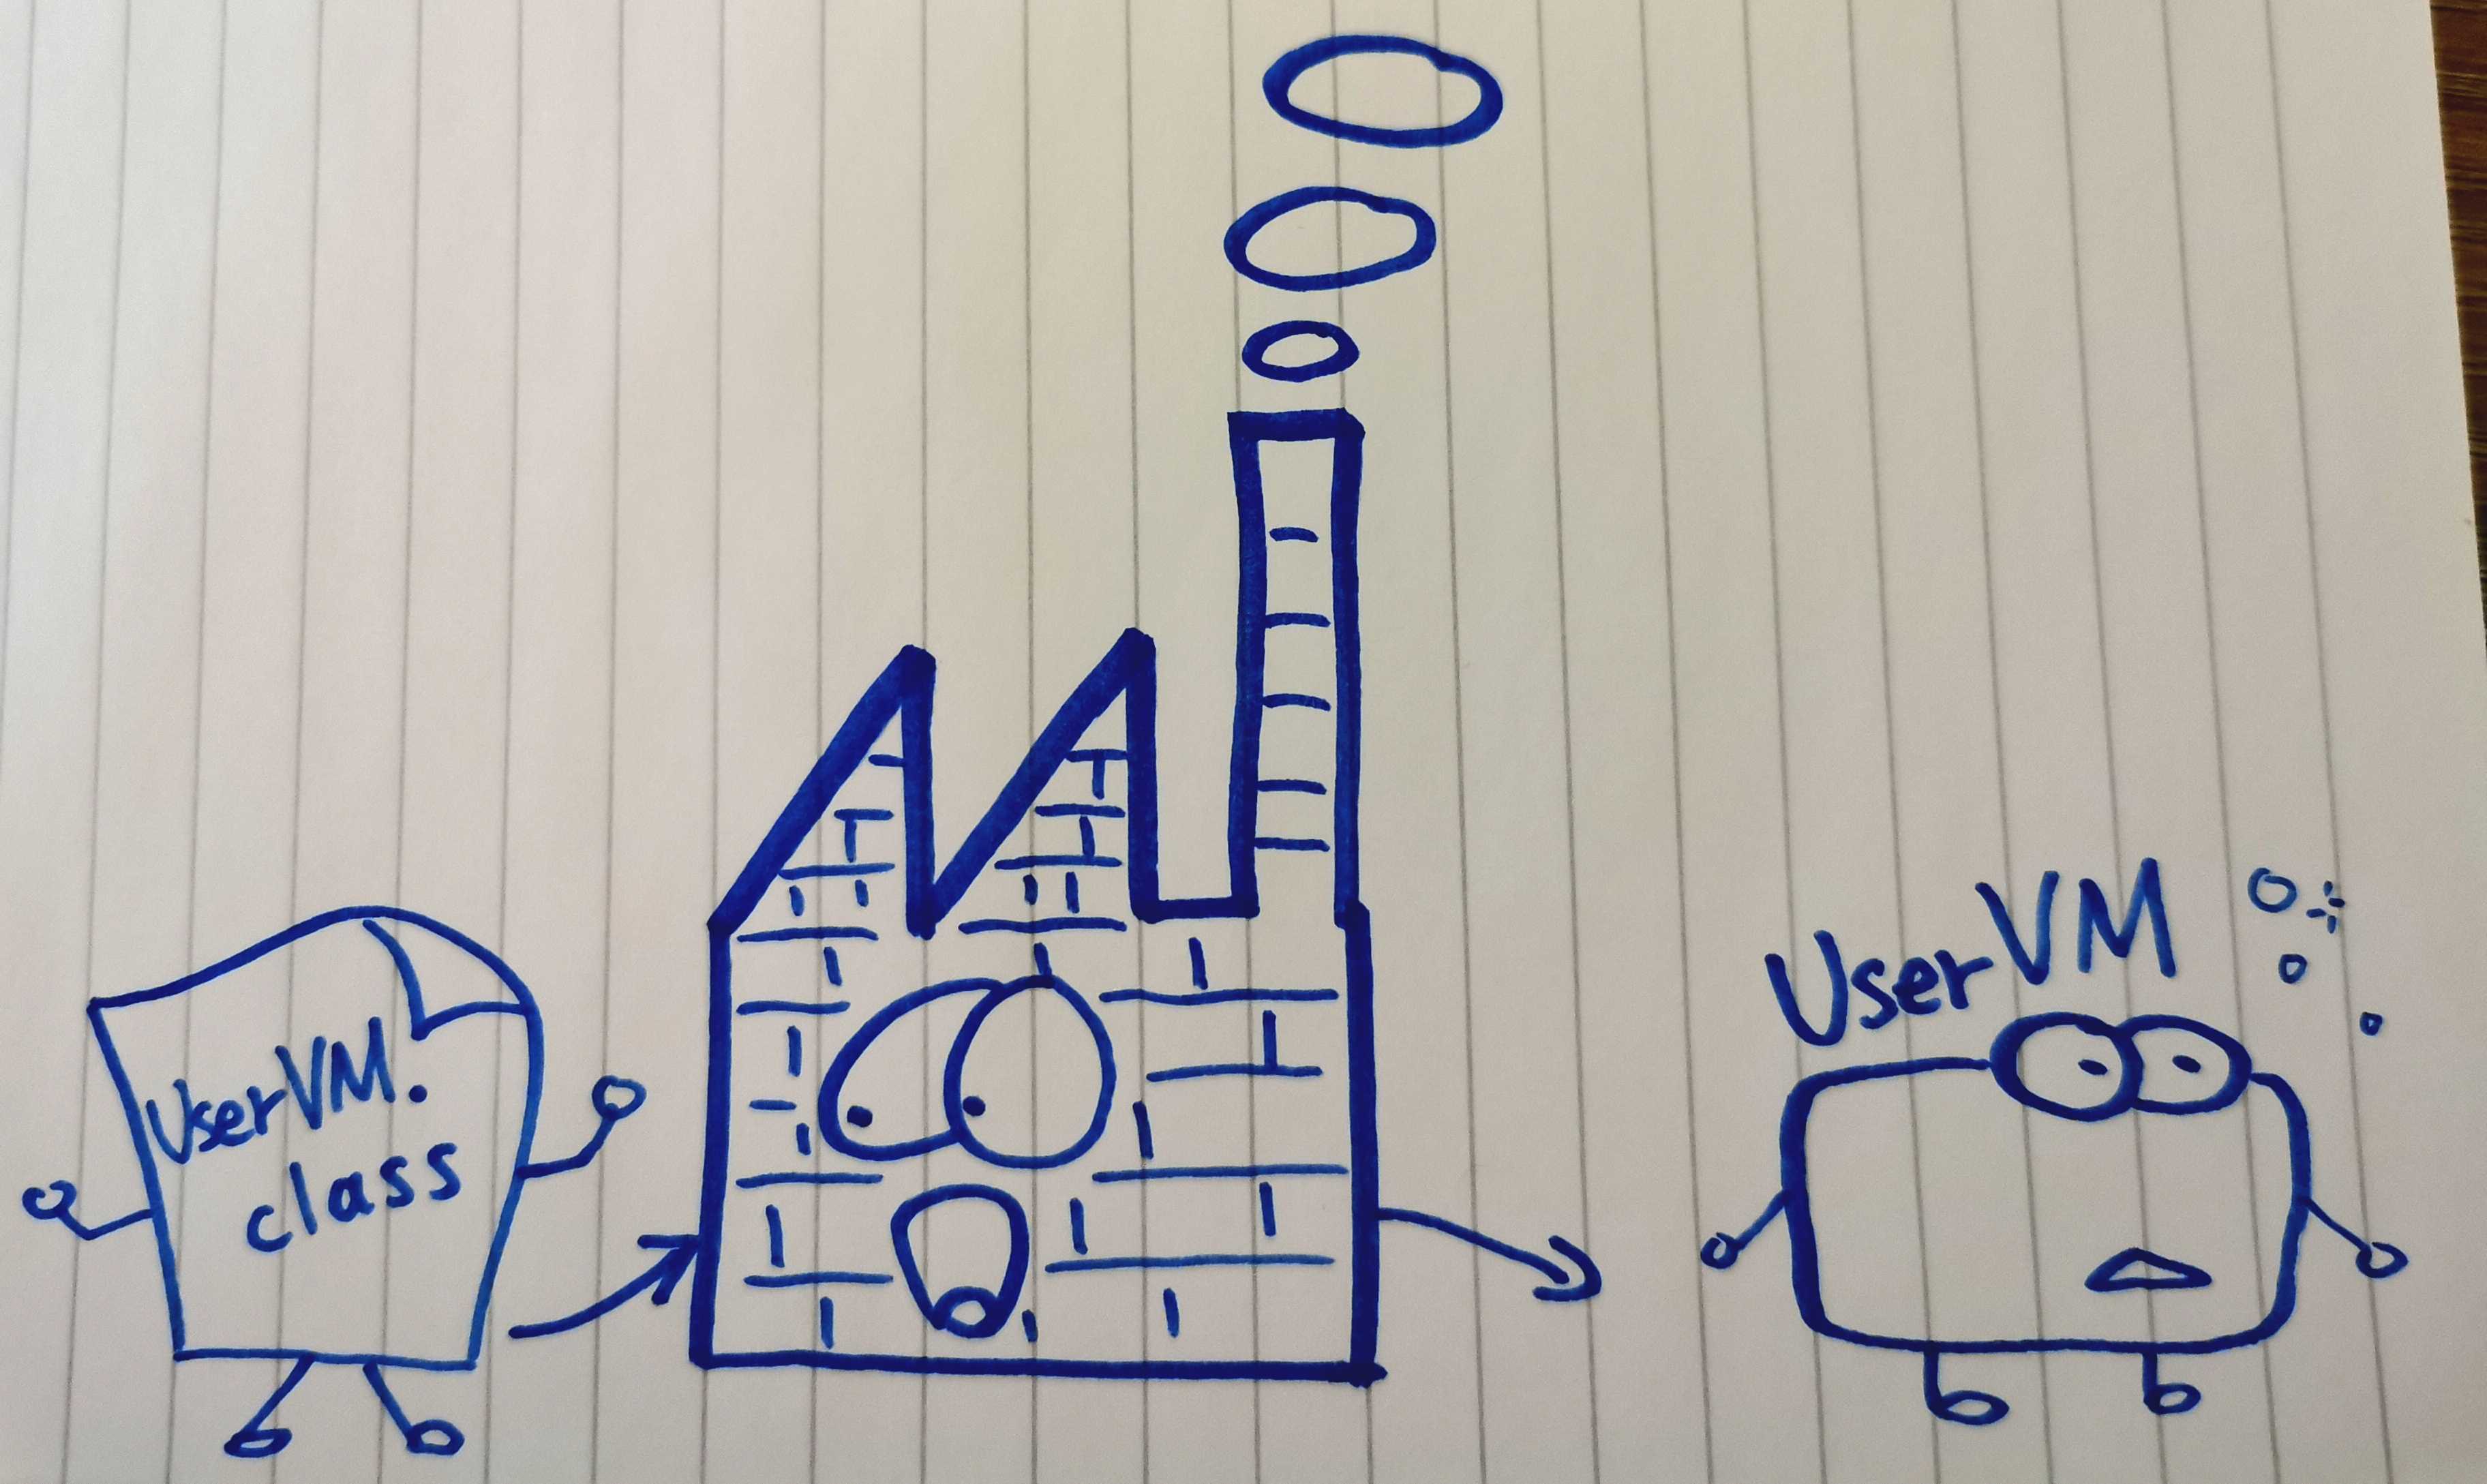 UserVM.
class
UserVM